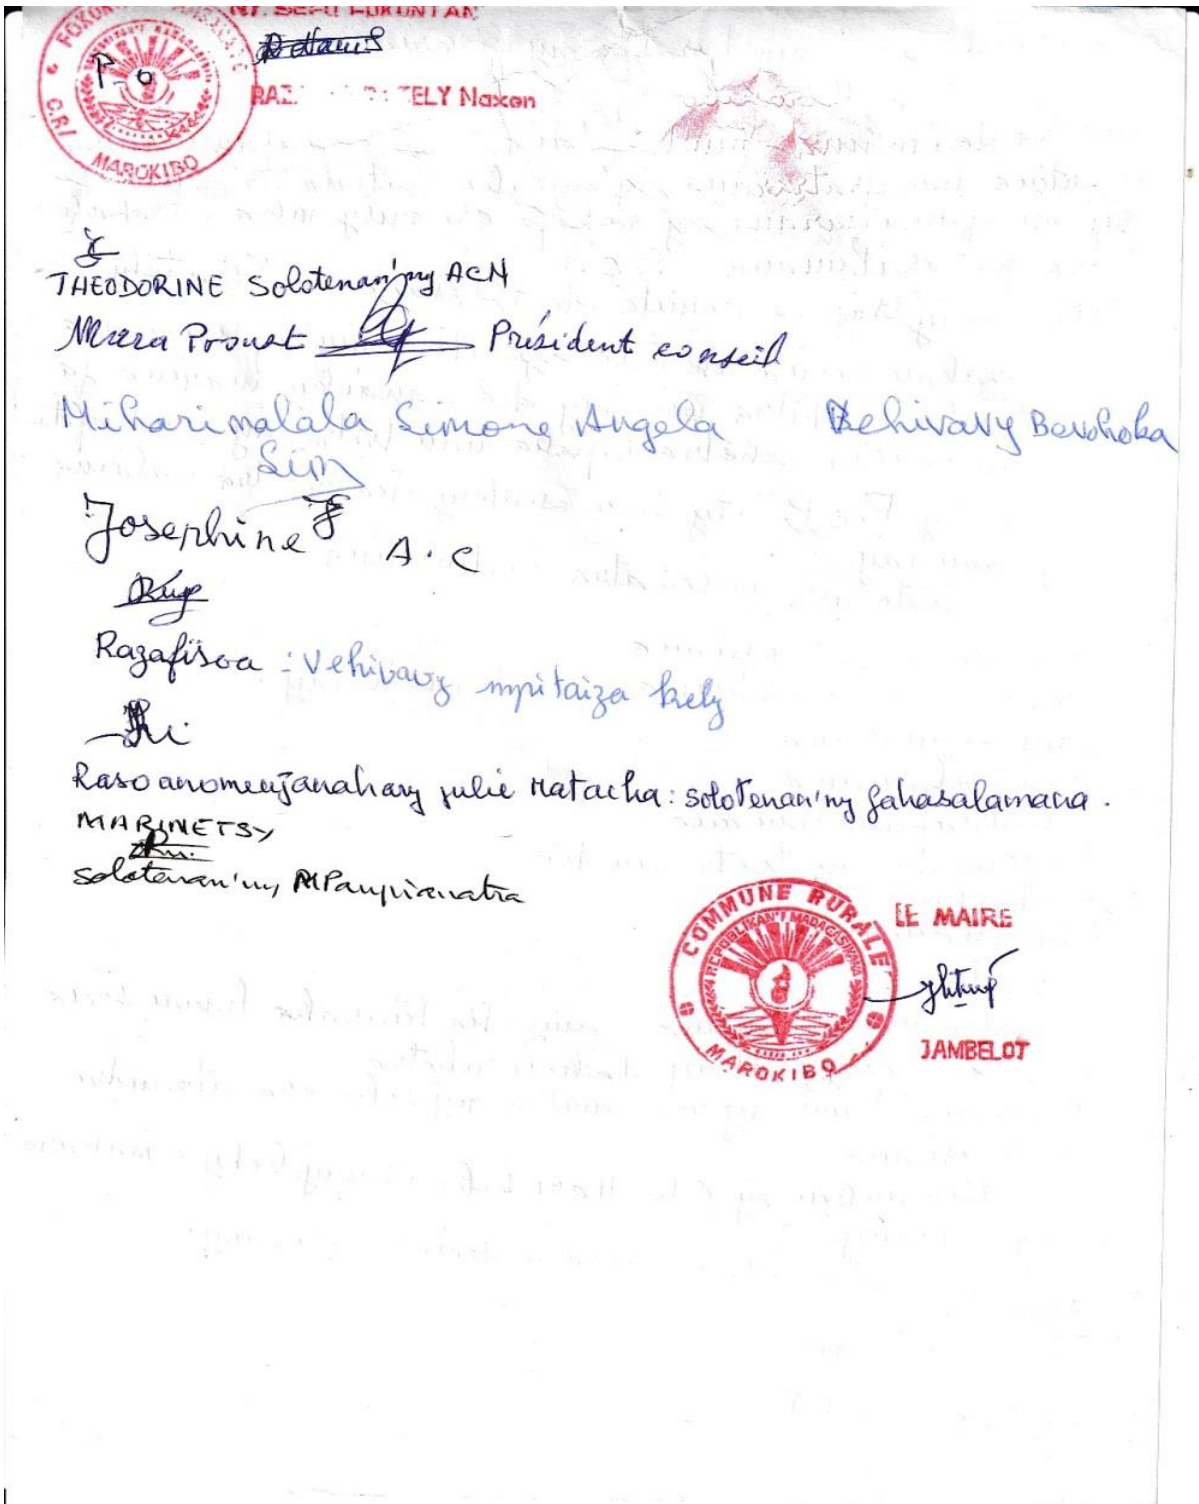 FOKONTANY
C.R/
MAROKIBO
P.o
RAZ ELY Naxon
THEODORINE Solotenan'ny ACN
Maera Proust Président conseil
Miharimalala Simone Angela Vehivavy Bevohoka
Sim
Josephine A.C
Razafisoa : Vehivavy mpitaiza kely
Rasoanomenjanahary julie Natacha : solotenan'ny fahasalamana.
MARINETSY
solotenan'ny MPampianatra
COMMUNE RURALE
REPOBLIKAN'I MADAGASIKARA
MAROKIBO
LE MAIRE
JAMBELOT